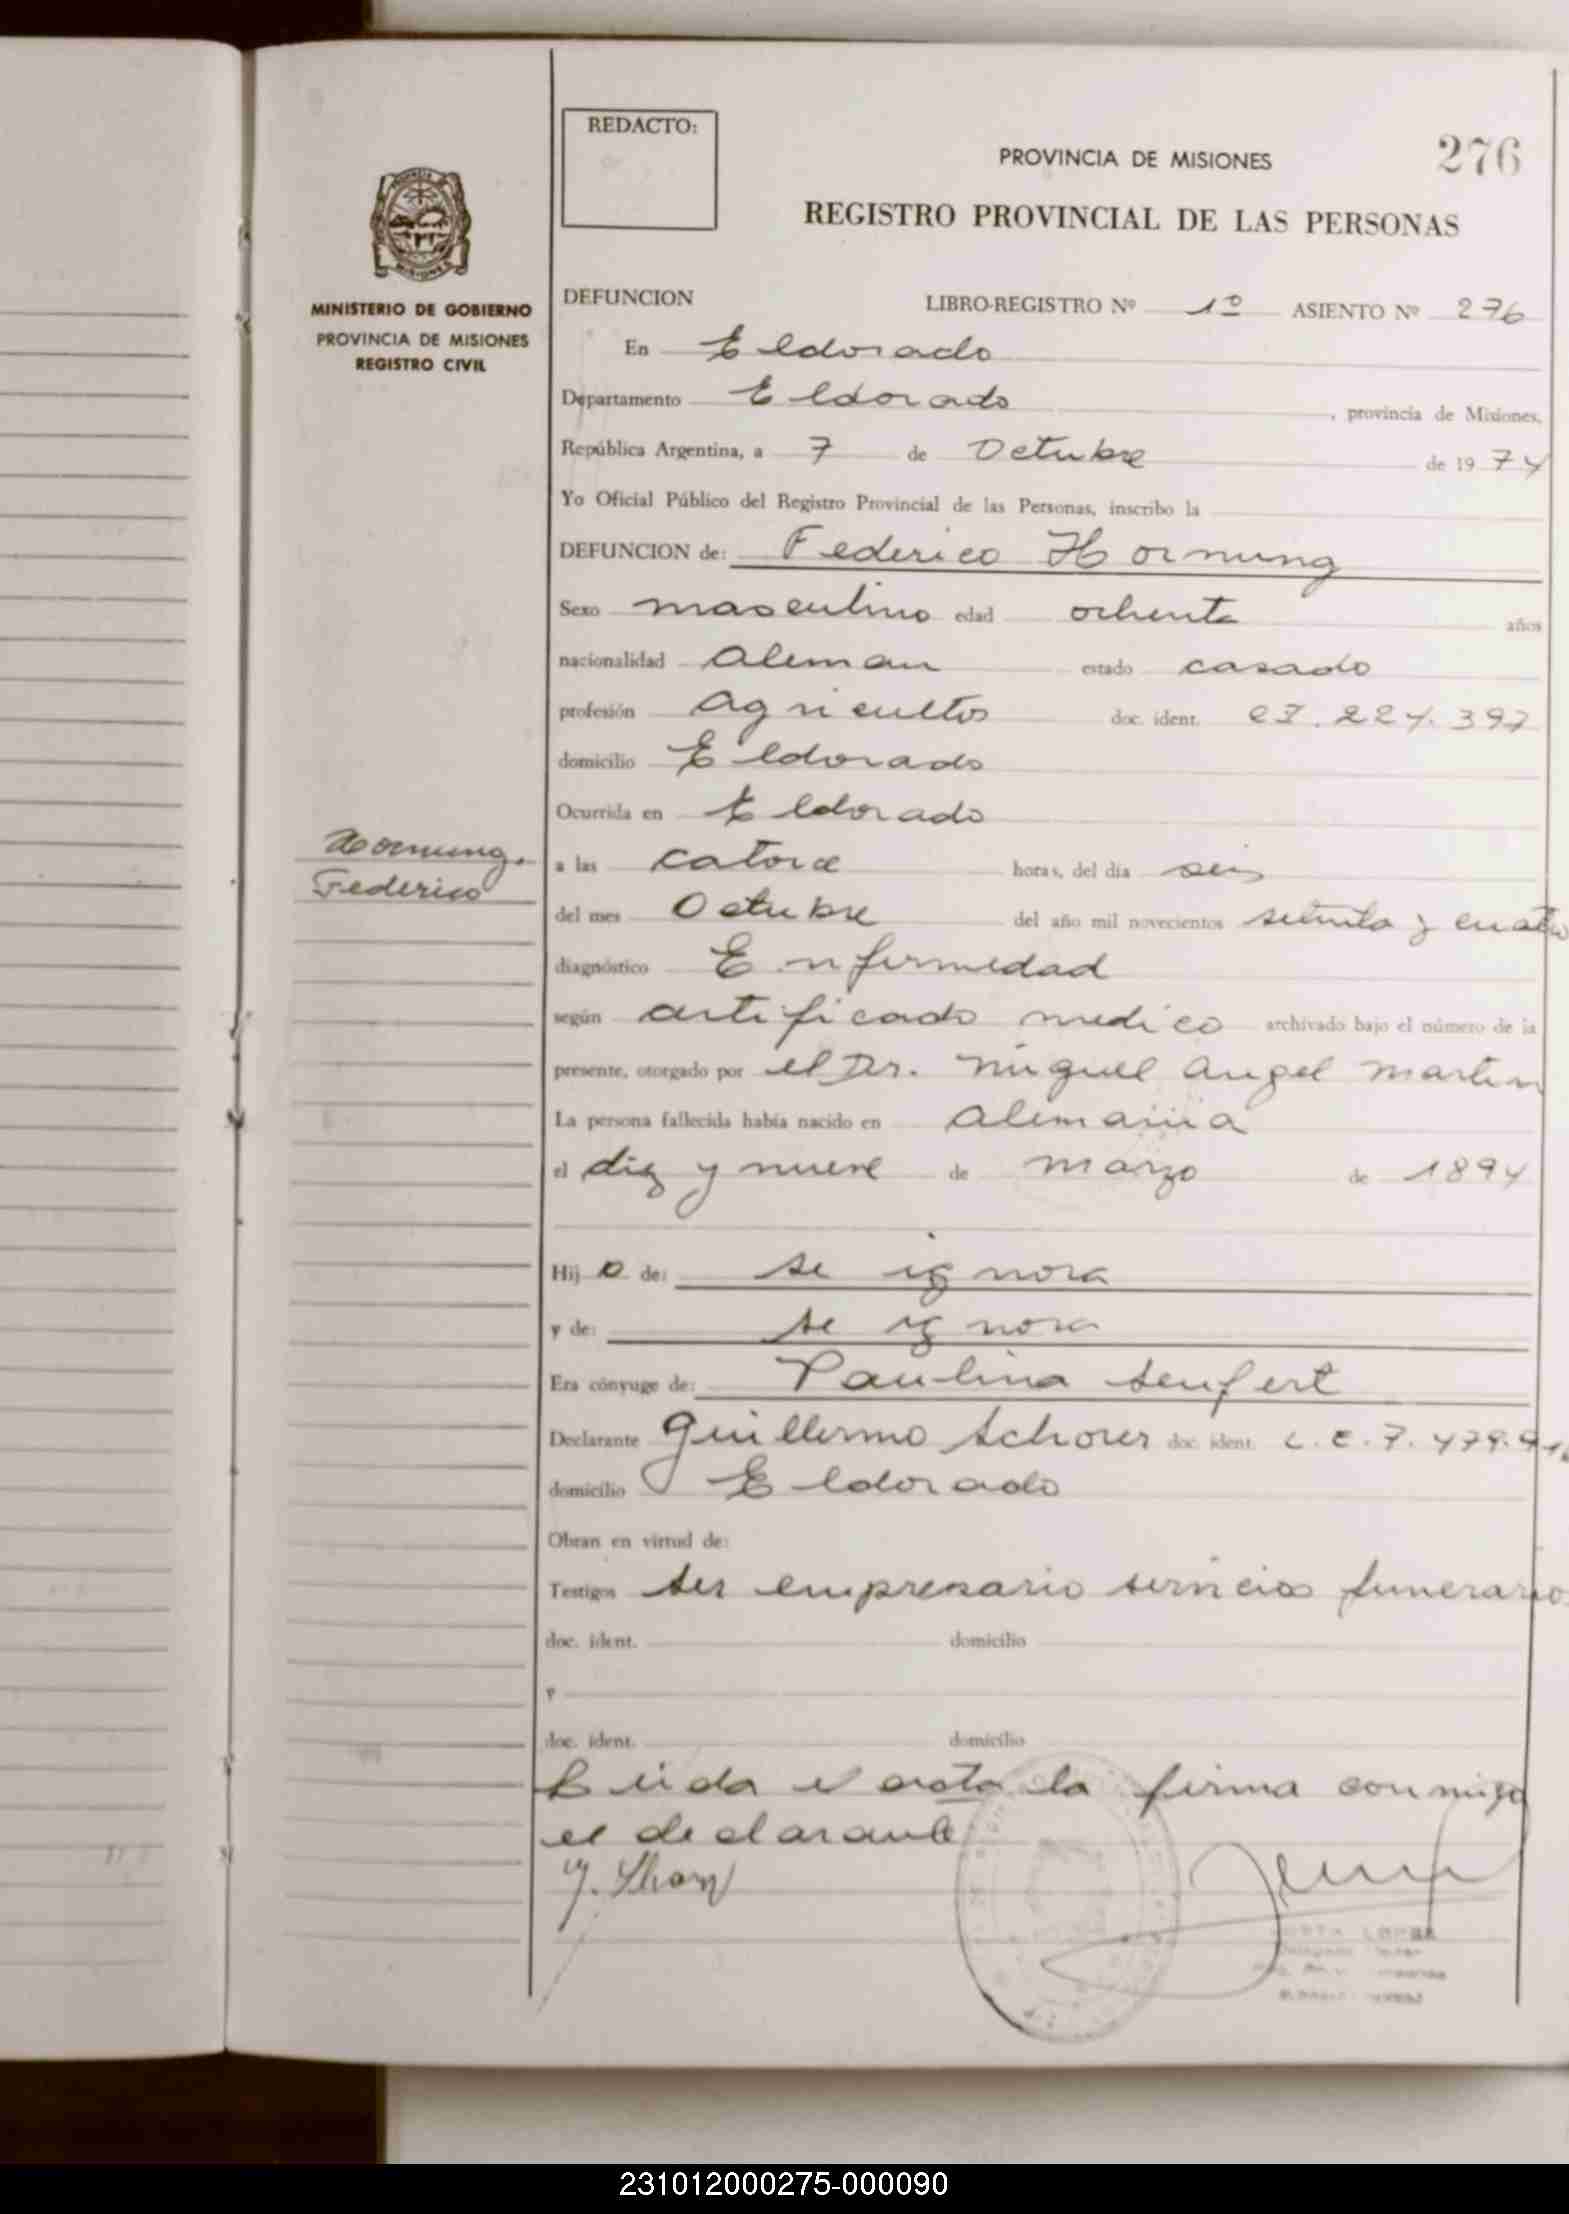 REDACTO:
PROVINCIA DE MISIONES
276
REGISTRO PROVINCIAL DE LAS PERSONAS
MINISTERIO DE GOBIERNO
PROVINCIA DE MISIONES
REGISTRO CIVIL
DEFUNCION LIBRO-REGISTRO Nº 1º ASIENTO Nº 276
En Eldorado
Departamento Eldorado, provincia de Misiones,
República Argentina, a 7 de Octubre de 1974
Yo Oficial Público del Registro Provincial de las Personas, inscribo la
DEFUNCION de: Federico Hornung
Sexo masculino edad ochenta años
nacionalidad aleman estado casado
profesión agricultor doc. ident. CI. 224.397
domicilio Eldorado
Ocurrida en Eldorado
Hornung,
Federico
a las catorce horas, del día seis
del mes Octubre del año mil novecientos setenta y cuatro
diagnóstico Enfermedad
según certificado medico archivado bajo el número de la
presente, otorgado por el Dr. Miguel Angel Martin
La persona fallecida había nacido en Alemania
el diez y nueve de marzo de 1894
Hijo de: se ignora
y de: se ignora
Era cónyuge de: Paulina Seufert
Declarante Guillermo Schorer doc. ident. L.E.7.479.
domicilio Eldorado
Obran en virtud de:
Testigos ser empresario servicios funerarios
doc. ident. domicilio
y
doc. ident. domicilio
Leida el acta la firma conmigo
el declarante
231012000275-000090